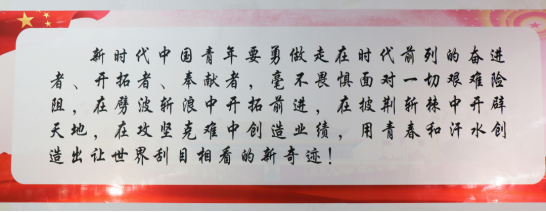 新时代中国青年要勇做走在时代前列的奋进
者、开拓者、奉献者，毫不畏惧面对一切艰难险
阻，在劈波斩浪中开拓前进，在披荆斩棘中开辟
天地，在攻坚克难中创造业绩，用青春和汗水创
造出让世界刮目相看的新奇迹！